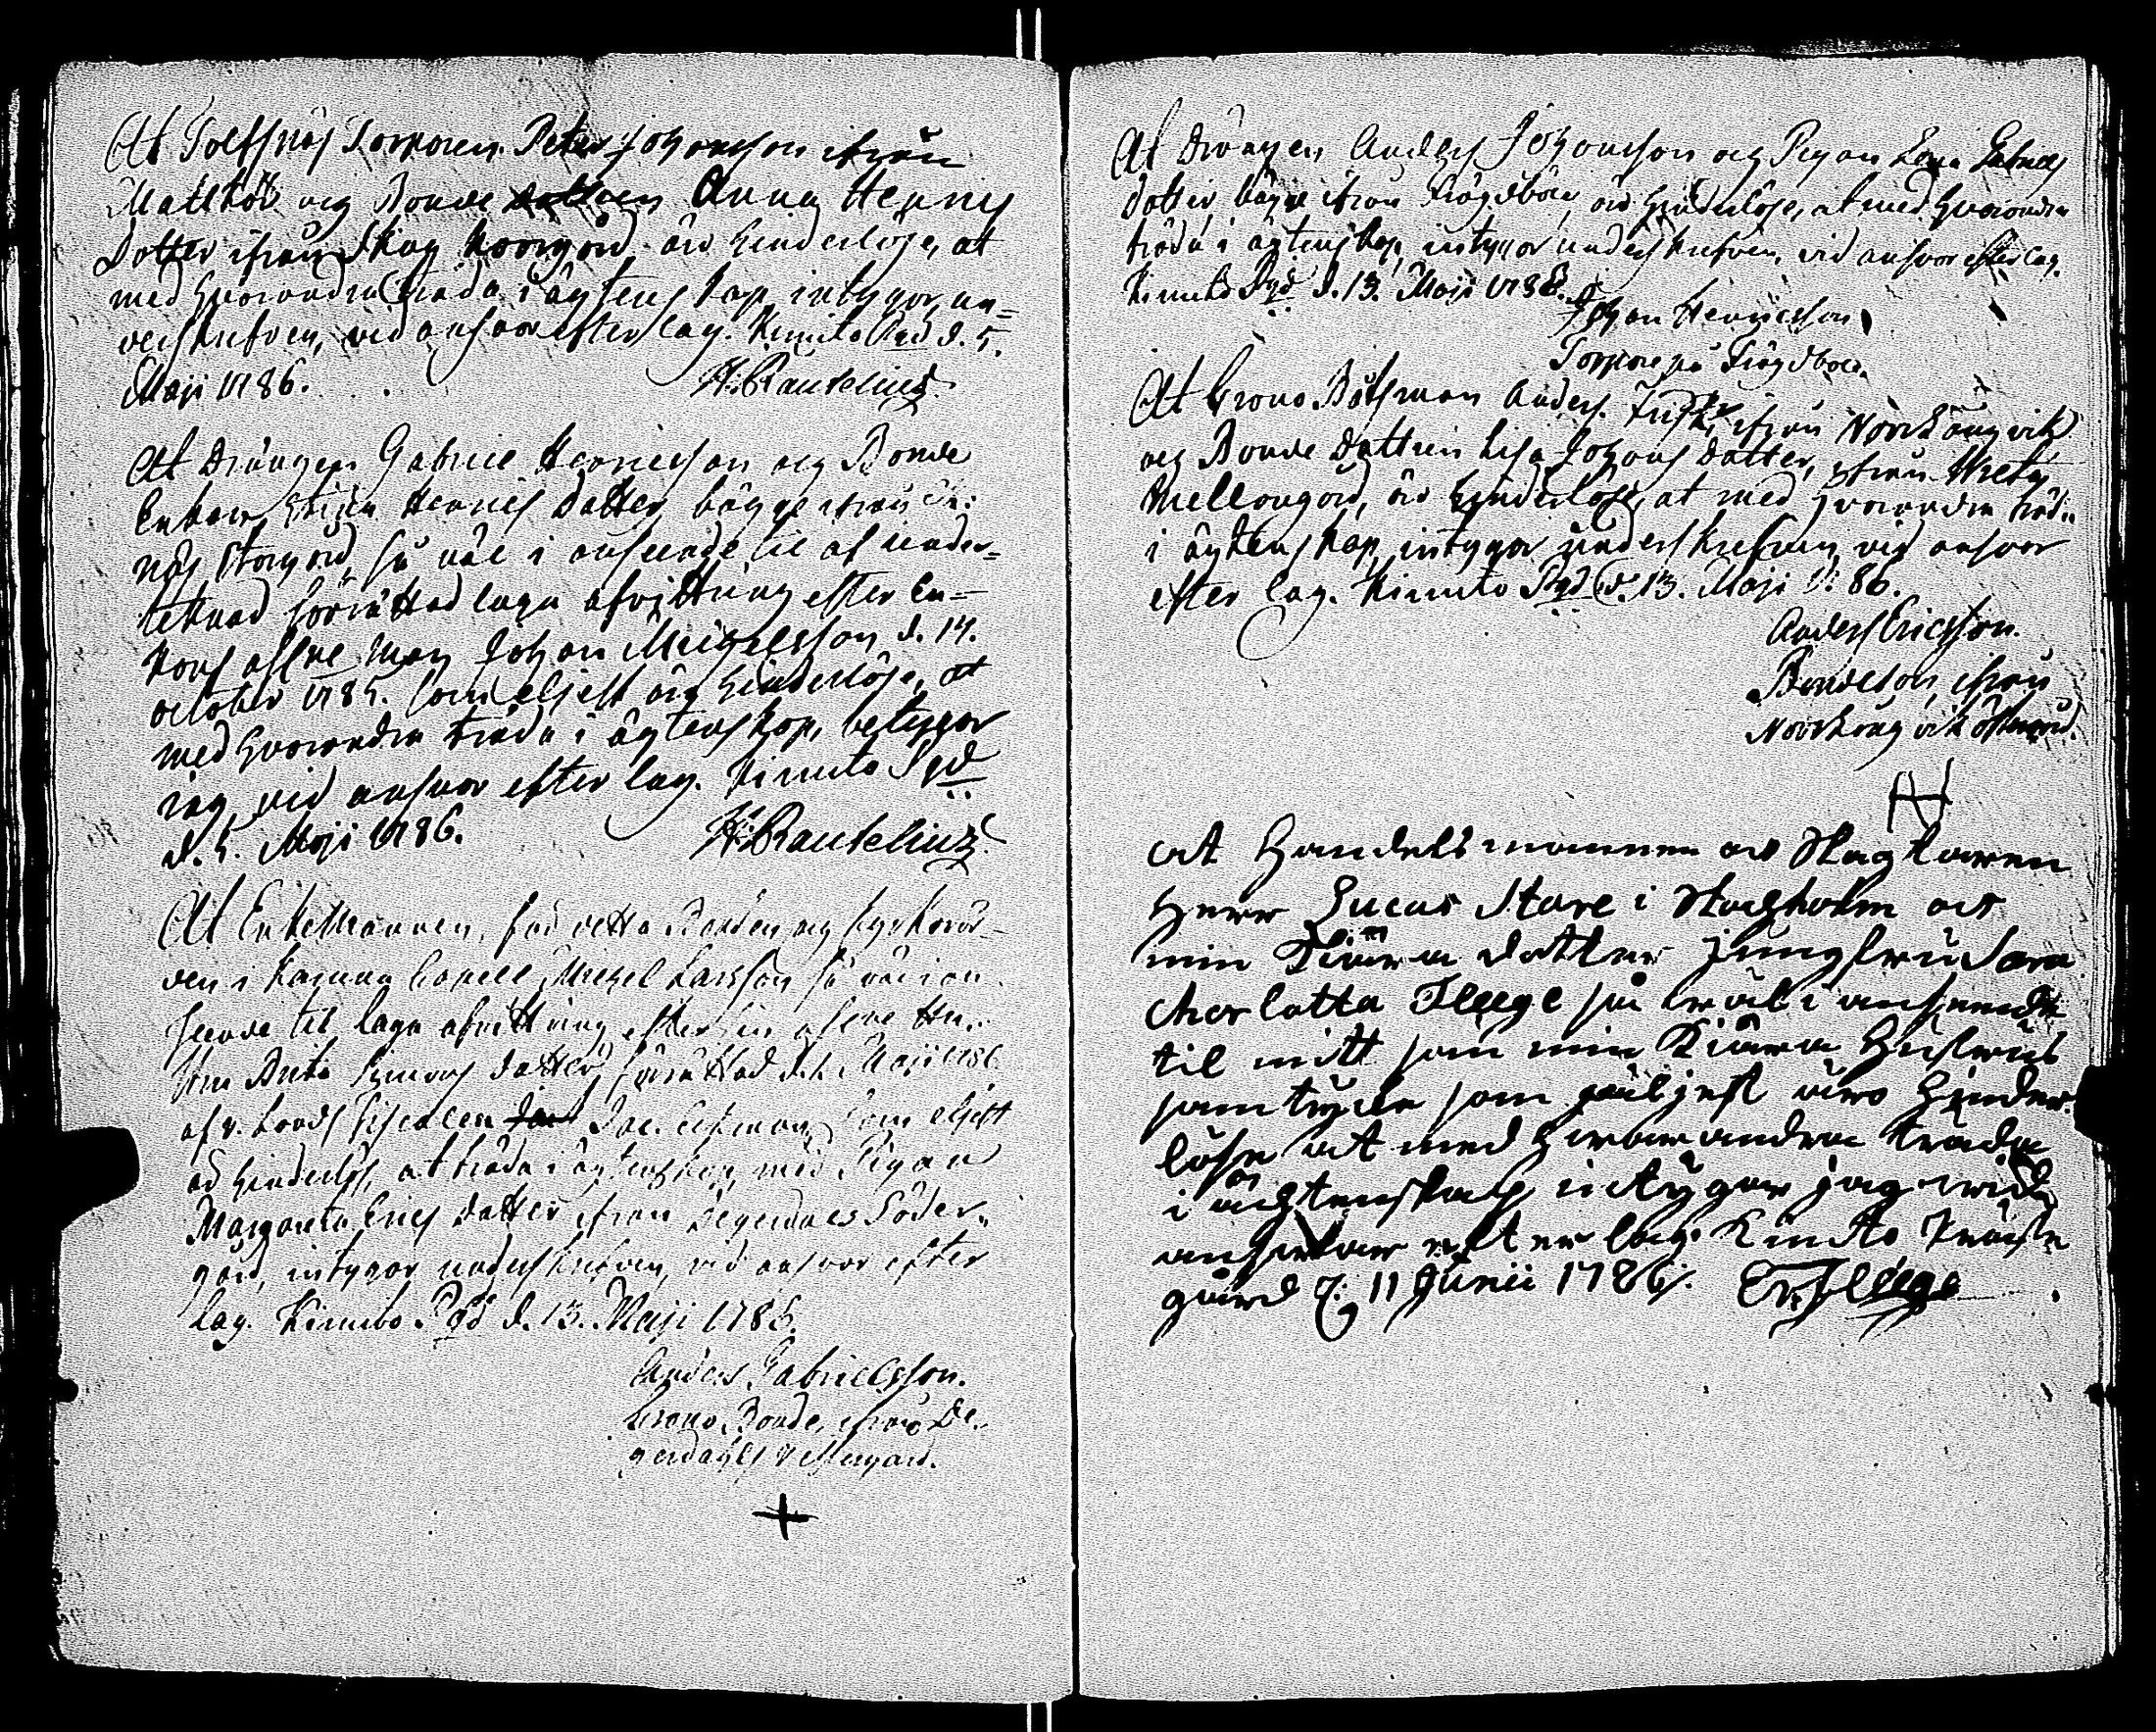 At Tolfsnäs Torparen Peter Johansson ifrån
Mattkärr och Bonde dottren Anna Henrics
Dotter ifrån Skog Norrgård, äro hinderlöse, at
med hvarandra träda i ägtenskap, intygar, un=
derskrefven, vid ansvar efter lag. Kimito Pgd d. 5.
Maji 1786. H: Rautelius
At Drängen Gabriel Henricsson och Bonde
Enkan Stina Henrics dotter, bägge ifrån
näs Storgård, så väl i anseende til af under=
teknad förrättad laga afvittring efter En=
kans aflne Man Johan Michelsson d. 14.
october 1785. som eljest äro hinderlöse, at
med hvarandra träda i ägtenskap, betygar
jag vid ansvar efter lag. Kimito Pgd
d. 5. Maji 1786. H: Rautelius
At Enkemannen, för detta Bonden och kyrkovär-
den i Karuna Capell Michel Larsson så väl i an
seende til laga afvittring efter sin aflne Hu..
stru Brita Simons dotter, förrättad d. 1. Maji 1786
af v. Lands fiscalen Jac. Ekman, som eljest
är hinderlös, at träda i ägtenskap, med Pigan
Margareta Erics dotter ifrån Degerdahls Söder..
gård, intygar underskrefven, vid ansvar efter
lag. Kimito Pgd d. 13. Maji 1786.
Anders Gabrielsson.
Crono Bonde, ifrån De..
gerdahls Vestergård.
At Drängen Anders Johansson och Pigan Lena Gabriels
dotter, bägge ifrån Frögdböle, äro hinderlöse, at med hvarandra
träda i ägtenskap, intygar underskrefven, vid ansvar efter lag.
Kimito Pgd d. 13. Maji 1786.
Johan Henricsson
Torpare på Frögdböle.
At Crono Båtsman Anders Frisk, ifrån Norrlångvik
och Bonde Dottren Lisa Johans dotter, ifrån
Mellangård, äro hinderlöse, at med hvarandra träda
i ägtenskap, intygar underskrefven, vid ansvar
efter lag. Kimito Pgd d. 13. Maji 1786.
Anders Ericsson.
Bondeson, ifrån
Norrlångvik östergård.
at Handelsmannen
Herr Lucas Stare i Stockholm och
min Kiära dotter jungfru Sara
Charlotta Fleege så wäl i anseende
til mitt som min Kiära Hustrus
samtycke som eljest äro hinder
löse at med hwarandra träda
i ächtenskap intygar jag wid
answar efter lag. Kimito Präste
gård d: 11 Junii 1786. Er. Fleege